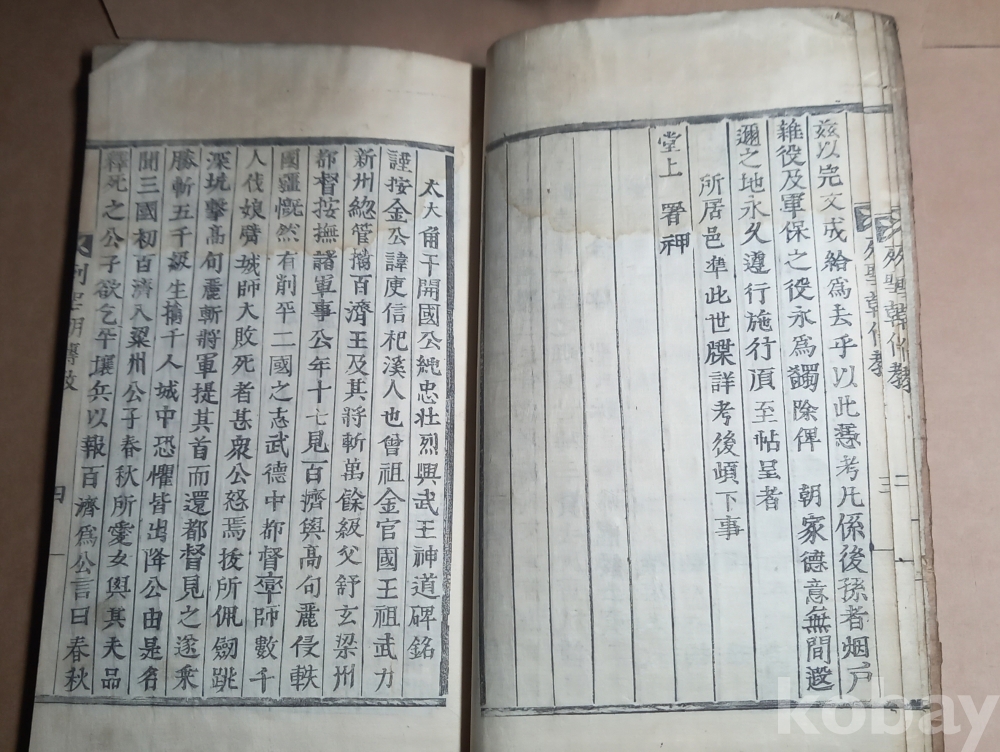 茲以完文成給爲去乎以此憑考凡係後孫者烟戶
雜役及軍保之役永爲蠲除俾 朝家德意無間遐
邇之地永久遵行施行頂至帖呈者
所居邑準此世牒詳考後頉下事
堂上 署押
太大角干開國公純忠壯烈興武王神道碑銘
謹按金公諱庾信祀溪人也曾祖金官國王祖武力
新州總管擒百濟王及其將斬萬餘級父舒玄梁州
都督按撫諸軍事公年十七見百濟與高句麗侵軼
國疆慨然有削平二國之志武德中都督率師數千
人伐娘臂城師大敗死者甚衆公怒焉拔所佩劒跳
深坑擊高句麗斬將軍提其首而還都督見之遂乘
勝斬五千級生擒千人城中恐懼皆出降公由是名
聞三國初百濟入梁州公子春秋所愛女與其夫品
釋死之公子欲乞平壤兵以報百濟爲公言曰春秋
四
三
二
kobay